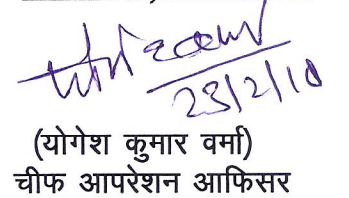 23/2/10
(योगेश कुमार वर्मा)
चीफ आपरेशन आफिसर